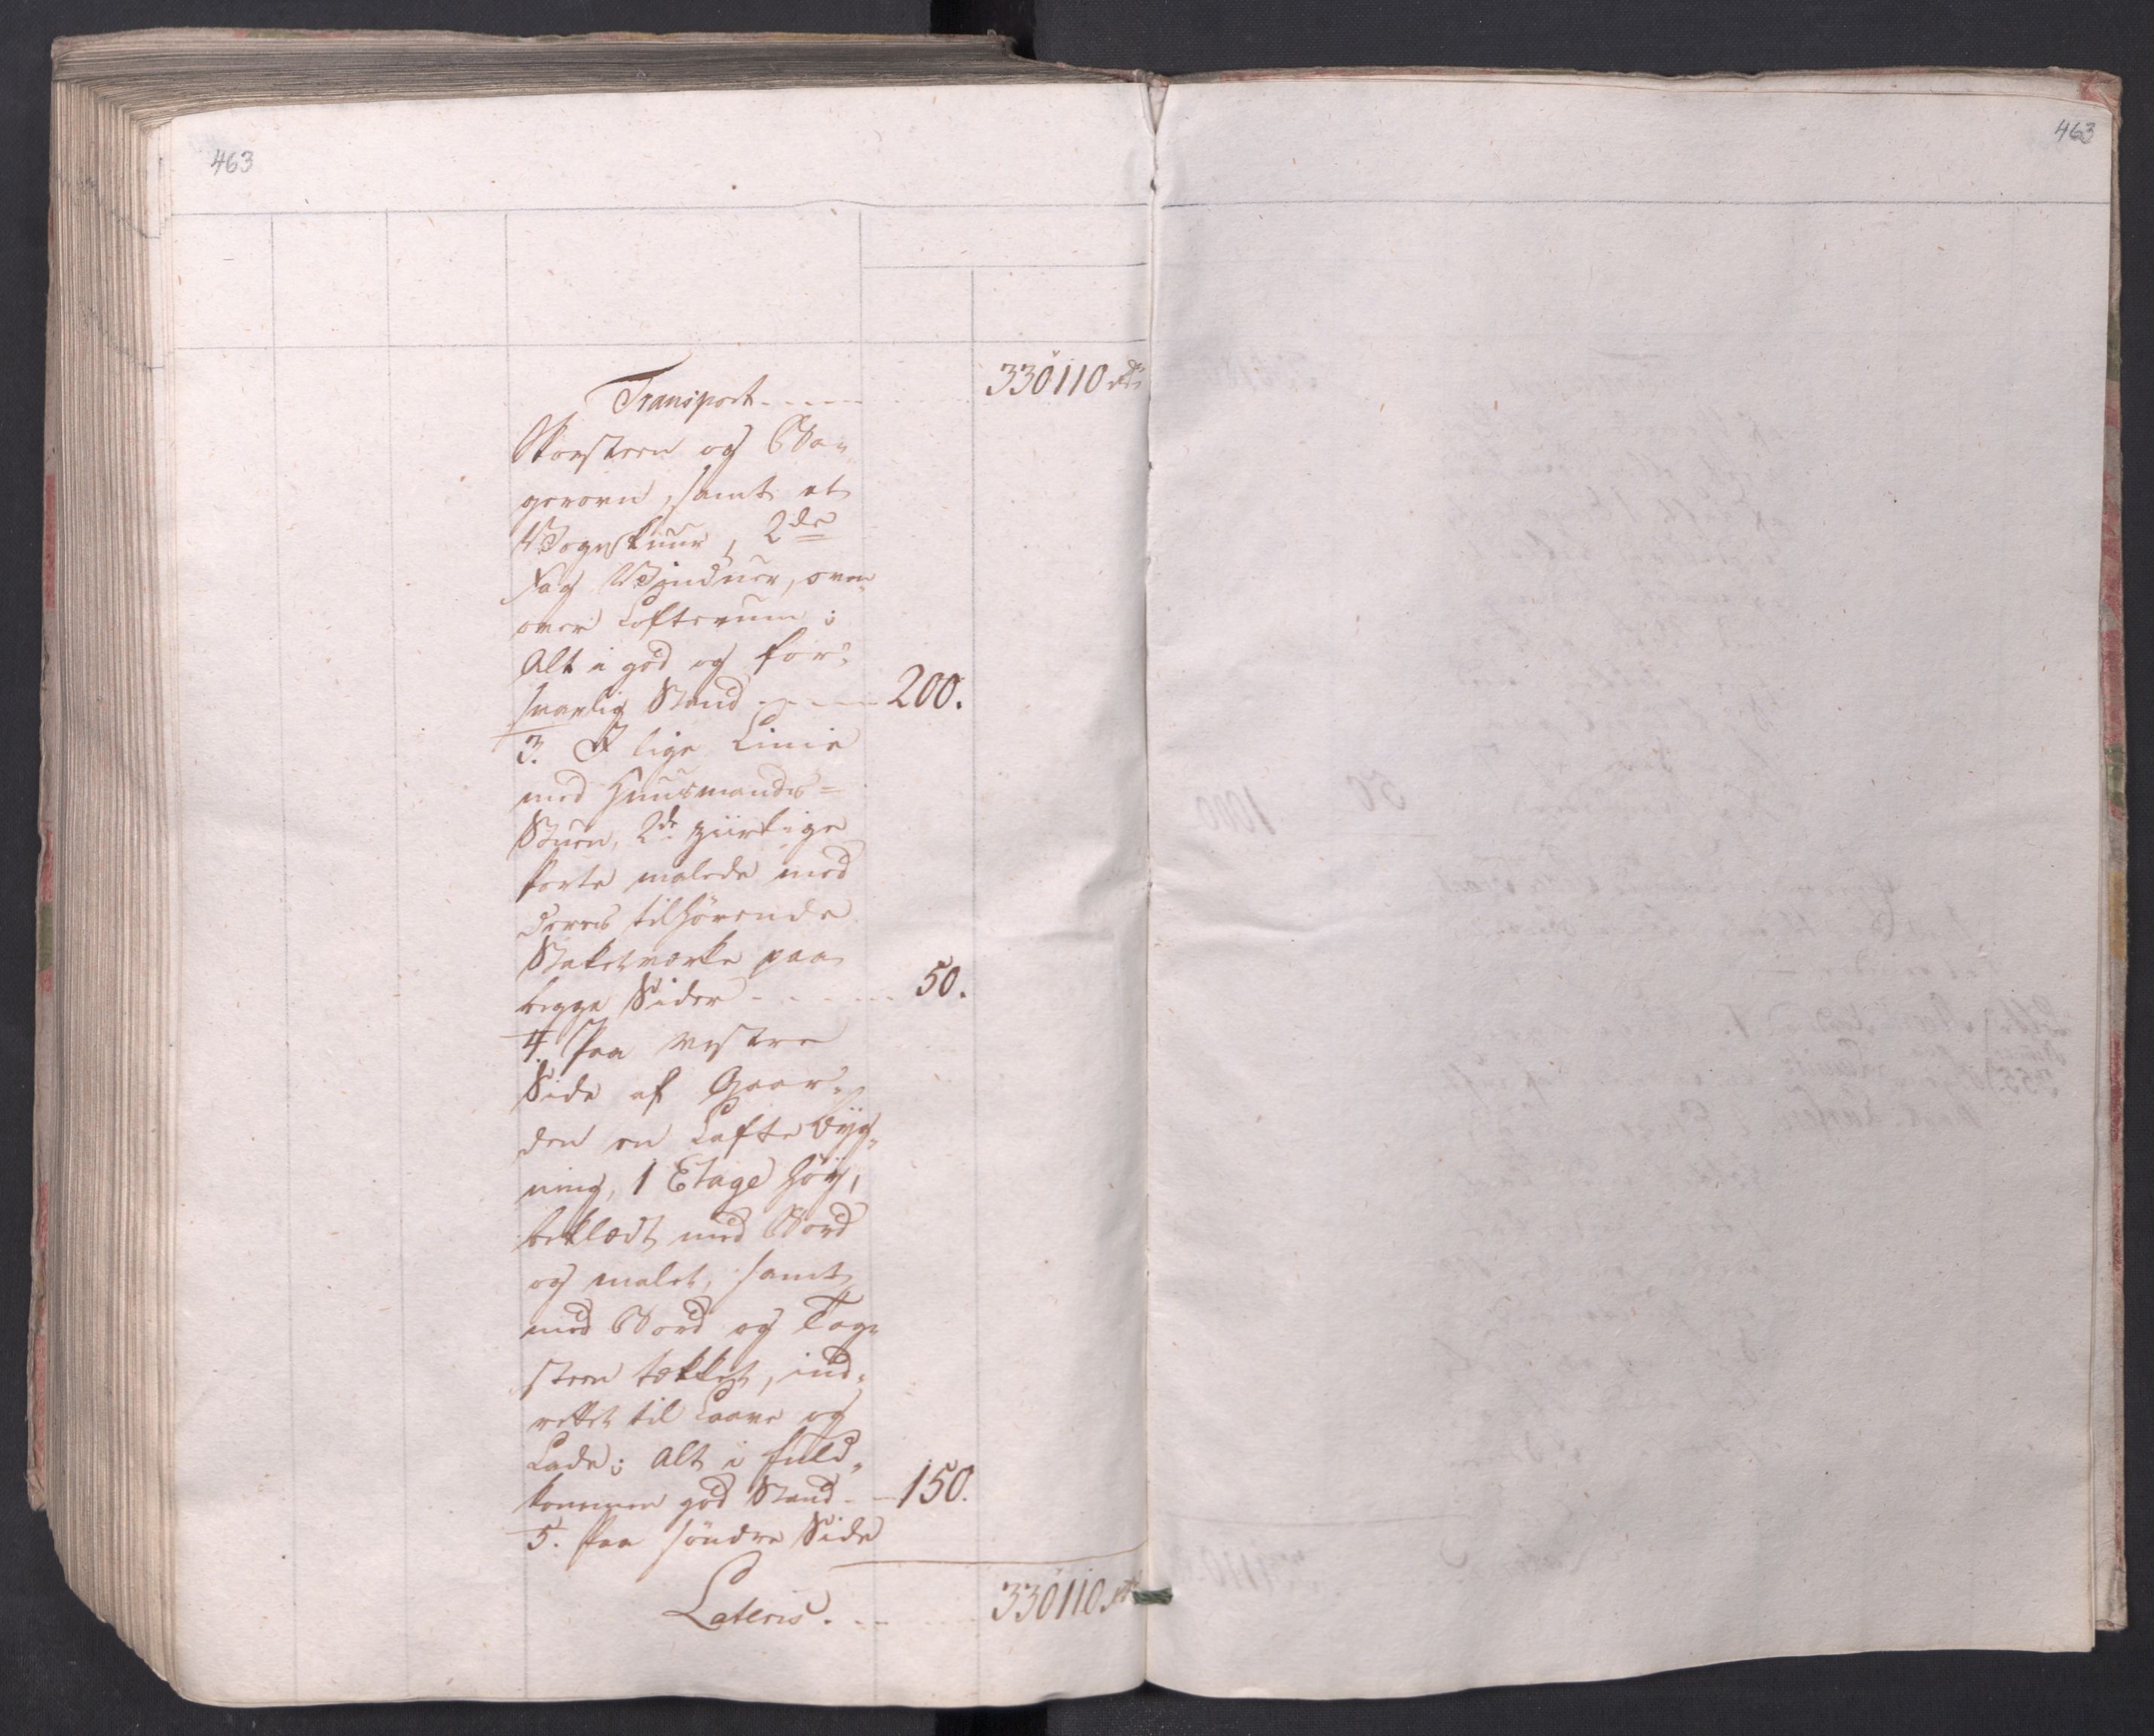 463
463
Transport - - - - - 330110 rd
Skorsteen og Ba-
gerovn, samt et
Vognskuur, 2de
Fag Vinduer, oven
over Lofterum;
Alt i god og for-
svarlig Stand - - - - 200.
3. I lige Linie
med Huusmands-
Stuen, 2de ziirlige
Porte malede med
deres tilhørende
Staketværke paa
begge Sider - - - - - 50.
4. Paa vestre
Side af Gaar-
den en Lafte Byg-
ning, 1 Etage høy,
beklædt med Bord
og malet, samt
med Bord og Tag-
steen tækket, ind-
rettet til Laave og
Lade; Alt i fuld-
kommen god Stand - - 150.
5. Paa søndre Side
Lateris - - - 330110 rd